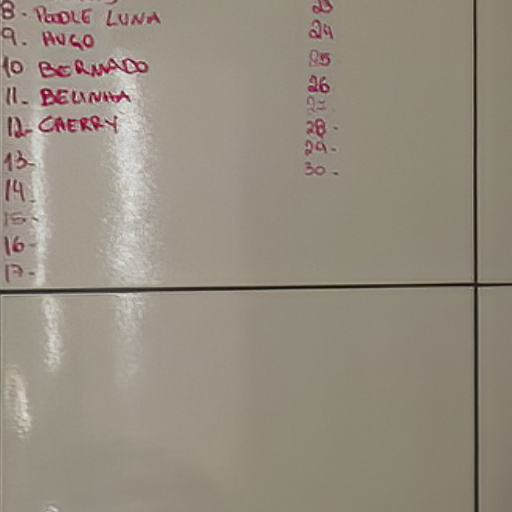 8. POODLE LUNA
9. HUGO
10 BERNADO
11. BELINHA
12- CHERRY
13-
14.
15-
16-
17-
23
24
25
26
27
28-
29-
30-